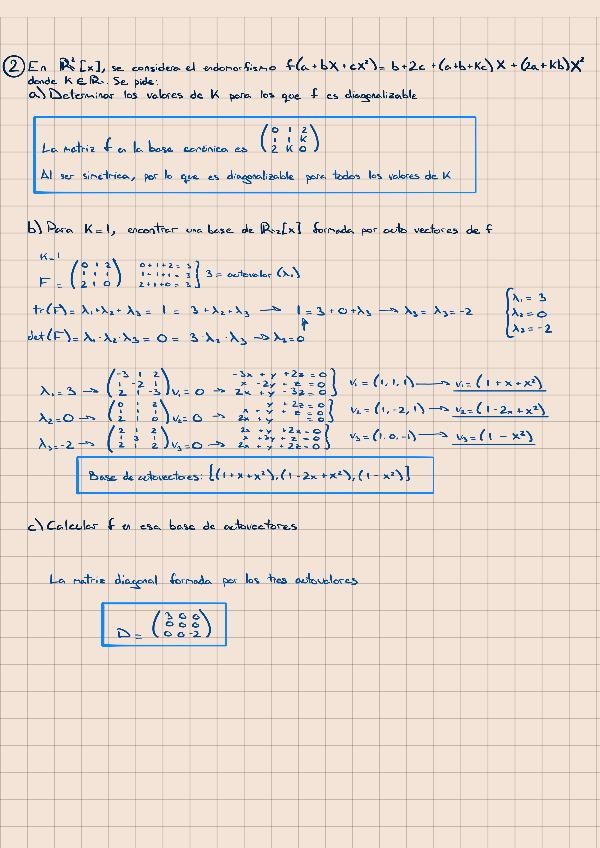 ② En ℝ²[x], se considera el endomorfismo f(a+bX+cX²)= b+2c+(a+b+Kc)X+(2a+Kb)X²
donde K∈ℝ. Se pide:
a) Determinar los valores de K para los que f es diagonalizable
La matriz f en la base canónica es (0 1 2
1 1 K
2 K 0)
Al ser simetrica, por lo que es diagonalizable para todos los valores de K
b) Para K=1, encontrar una base de ℝ₂[x] formada por auto vectores de f
K=1
F = (0 1 2
1 1 1
2 1 0) 0+1+2=3
1+1+1=3
2+1+0=3 } 3 = autovalor (λ₁)
tr(F)= λ₁+λ₂+λ₃ = 1 = 3+λ₂+λ₃ → 1=3+0+λ₃ → λ₃=λ₃=-2
det(F)= λ₁·λ₂·λ₃=0= 3·λ₂·λ₃ → λ₂=0
{ λ₁ = 3
λ₂ = 0
λ₃ = -2
λ₁=3 → (-3 1 2
1 -2 1
2 1 -3) v₁=0 → -3x + y + 2z = 0
x - 2y + z = 0
2x + y - 3z = 0 } v₁ = (1,1,1) → v₁=(1+x+x²)
λ₂=0 → (0 1 2
1 1 1
2 1 0) v₂=0 → y + 2z = 0
x + y + z = 0
2x + y = 0 } v₂ = (1,-2,1) → v₂=(1-2x+x²)
λ₃=-2 → (2 1 2
1 3 1
2 1 2) v₃=0 → 2x + y + 2z = 0
x + 3y + z = 0
2x + y + 2z = 0 } v₃ = (1,0,-1) → v₃=(1 - x²)
Base de autovectores: [(1+x+x²),(1-2x+x²),(1-x²)]
c) Calcular f en esa base de autovectores
La matriz diagonal formada por los tres autovalores
D = (3 0 0
0 0 0
0 0 -2)